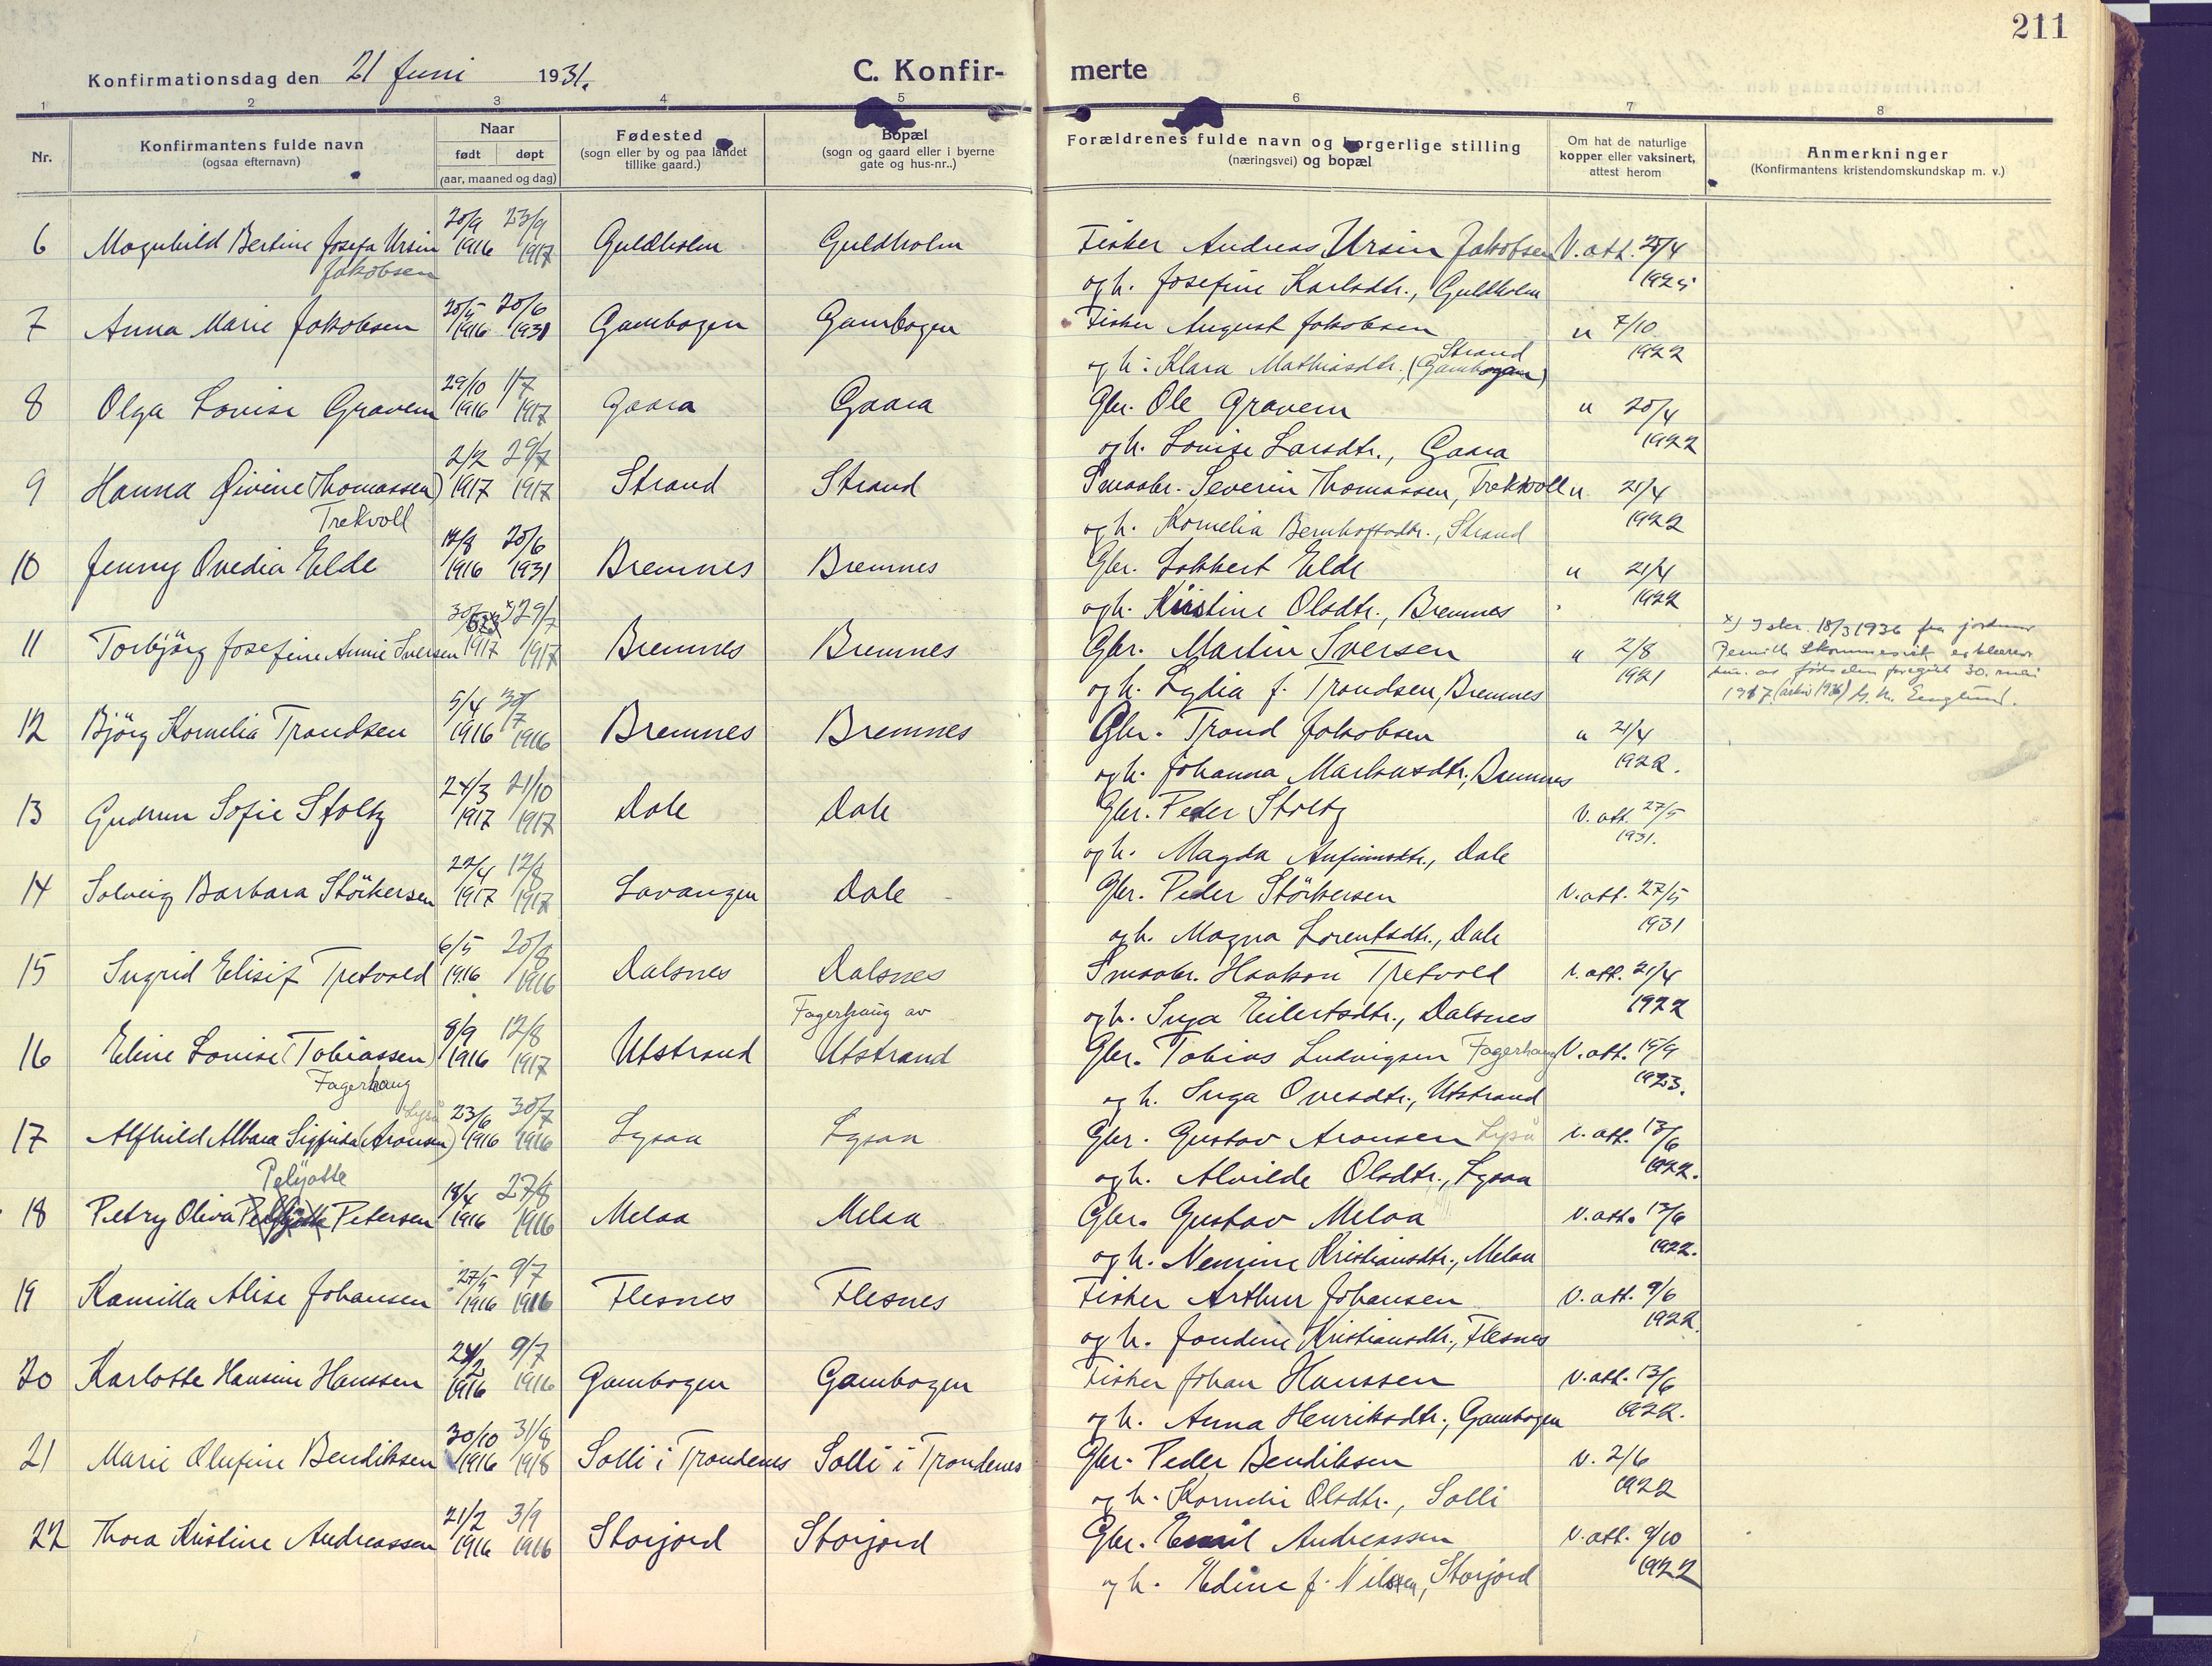 211
Konfirmationsdag den 21 Juni 1931. C. Konfirmerte
1 2 3 4 5 6 7 8
Nr.
Konfirmantens fulde navn
(ogsaa efternavn)
Naar
født døpt
(aar, maaned og dag)
Fødested
(sogn eller by og paa landet
tillike gaard.)
Bopæl
(sogn og gaard eller i byerne
gate og hus-nr..)
Forældrenes fulde navn og borgerlige stilling
(næringsvei) og bopæl
Om hat de naturlige
kopper eller vaksinert,
attest herom
Anmerkninger
(Konfirmantens kristendomskundskap m. v.)
6 Magnhild Bertine Josefa Ursin 20/9 1916 23/9 1917 Guldholm Guldholm Fisker Andreas Ursin Jakobsen V. att. 25/4 1925
Jakobsen
og h. Josefine Karlsdtr., Guldholm
7 Anna Marie Jakobsen 20/5 1916 20/6 1931 Gambogen Gambogen Fisker August Jakobsen " 7/10 1922
og h: Klara Mathiasdtr. (Gambogen) Strand
8 Olga Lovise Gravem 29/10 1916 1/7 1917 Gaara Gaara Gbr. Ole Gravem " 20/4 1922
og h. Lovise Larsdtr., Gaara
9 Hanna Øivine (Thomassen) 2/2 1917 29/7 1917 Strand Strand Smaabr. Severin Thomassen, Trekvoll " 21/4 1922
Trekvoll
og h. Kornelia Bernhoftsdtr., Strand
10 Jenny Ovedia Elde 14/8 1916 20/6 1931 Bremnes Bremnes Gbr. Lobbert Elde " 21/4 1922
og h. Kirstine Olsdtr., Bremnes
11 Torbjörg Josefine Annie Iversen 30/5 x) 1917 29/7 1917 Bremnes Bremnes Gbr. Martin Iversen " 2/8 1921
og h. Lydia f. Trondsen, Bremnes
x) I skr. 18/3 1936 fra jordmor
erklærer
hun at fødselen foregikk 30. mai
1917. (arkiv 1936)
12 Björg Kornelia Trondsen 5/4 1916 30/7 1916 Bremnes Bremnes Gbr. Trond Jakobsen " 21/4 1922.
og h. Johanna Markusdtr., Bremnes
13 Gudrun Sofie Stoltz 24/3 1917 21/10 1917 Dale Dale Gbr. Peder Stoltz V. att. 27/5 1931.
og h. Magda Anfinnsdtr., Dale
14 Solveig Barbara Störkersen 22/4 1917 12/8 1917 Lavangen Dale Gbr. Peder Störkersen V. att. 27/5 1931
og h. Magna Lorentsdtr., Dale
15 Ingrid Elisif Tretvold 6/5 1916 20/8 1916 Dalsnes Dalsnes Smaabr. Haakon Tretvold V. att. 21/4 1922
og h. Inga Eilertsdtr., Dalsnes
Fagerhaug av
16 Eline Lovise (Tobiassen) 8/9 1916 12/8 1917 Utstrand Utstrand Gbr. Tobias Ludvigsen Fagerhaug V. att. 15/9 1923.
Fagerhaug
og h. Inga Ovesdtr., Utstrand
Lyså
17 Alfhild Albara Sigfrida (Aronsen) 23/6 1916 30/7 1916 Lysaa Lysaa Gbr. Gustav Aronsen Lyså V. att. 13/6 1922.
og h. Alvilde Olsdtr., Lysaa
Pelyotte
18 Petry Oliva Petersen 18/4 1916 27/8 1916 Melaa Melaa Gbr. Gustav Melaa V. att. 13/6 1922.
og h. Nemine Kristiansdtr., Melaa
19 Kamilla Alise Johansen 27/5 1916 9/7 1916 Flesnes Flesnes Fisker Arthur Johansen V. att. 9/6 1922.
og h. Jondine Kristiansdtr., Flesnes
20 Karlotte Hansine Hanssen 24/2 1916 9/7 1916 Gambogen Gambogen Fisker Johan Hanssen V. att. 13/6 1922.
og h. Anna Henriksdtr., Gambogen
21 Marie Olufine Bendiksen 30/10 1916 31/8 1918 Solli i Trondenes Solli i Trondenes Gbr. Peder Bendiksen V. 2/6 1922
og h. Kornelie Olsdtr., Solli
22 Thora Kristine Andreassen 21/2 1916 3/9 1916 Storjord Storjord Gbr. Emil Andreassen V. att. 9/10 1922
og h. Edine f. Nilssen, Storjord